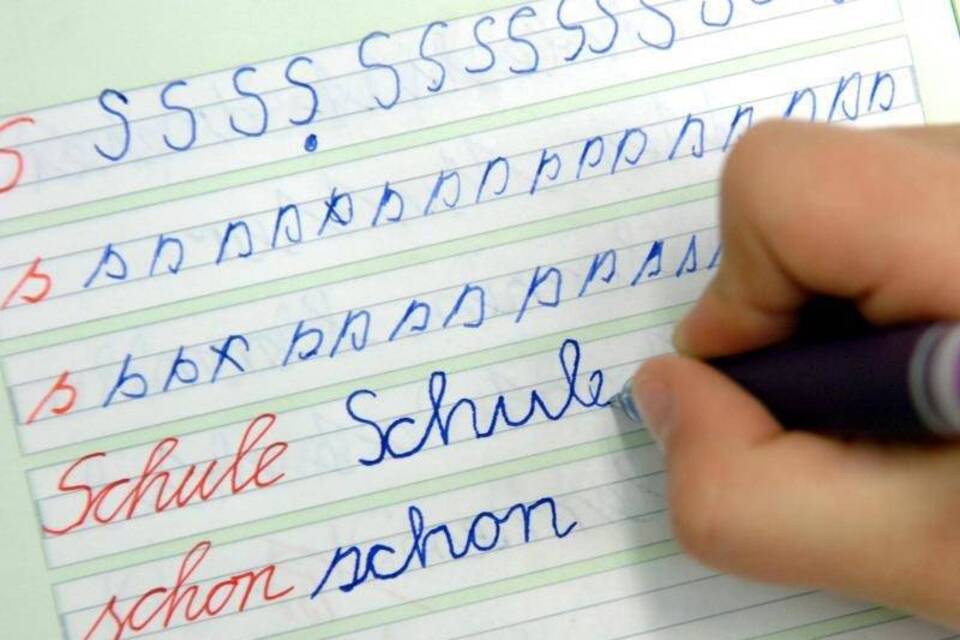 S S S S S S S S S S S S
s s s s s s s s s s s s s s s s
s s s s s s s s s s s
Schule Schule
schon schon